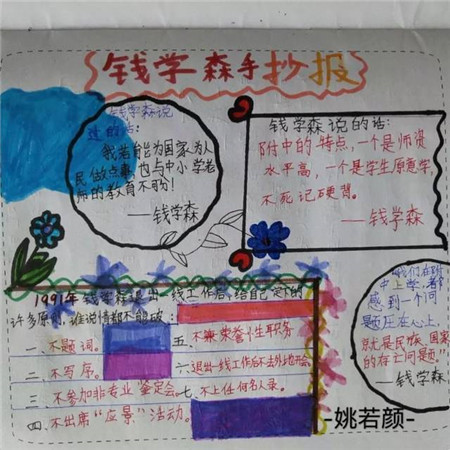 钱学森手抄报
钱学森说
过的话:
我若能为国家为人
民做点事,也与中小学老
师的教育不吩!
——钱学森
钱学森说的话:
附中的特点,一个是师资
水平高,一个是学生原意学,
不死记硬背。
——钱学森
我们在附
中上学,都
感到一个问
题压在心上,
就是民族、国家
的存亡问题"。
——钱学森
1991年,钱学森退出一线工作后,给自己定下的
许多原则,谁说情都不能破:
一、不题词。
二、不写序。
三、不参加非专业鉴定会。
四、不出席"应景"活动。
五、不兼荣誉性职务
六、退出一线工作后不去外地开会
七、不上任何名人录。
-姚若颜-